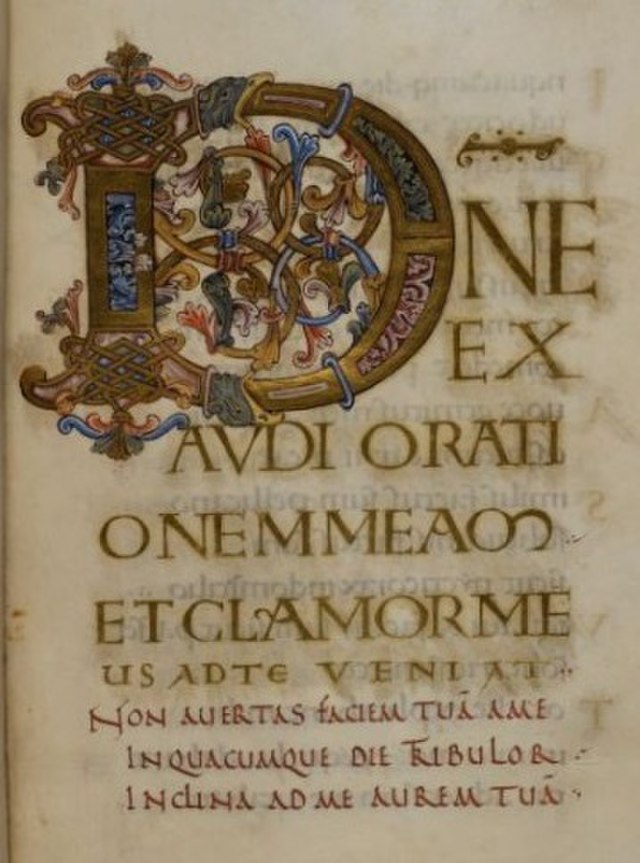 DN̄E
EX
AVDI ORATI
ONEM MEAM
ET CLAMOR ME
US AD TE VENIAT
NON AUERTAS FACIEM TUĀ A ME
IN QUACUMQUE DIE TRIBULOR
INCLINA AD ME AUREM TUĀ